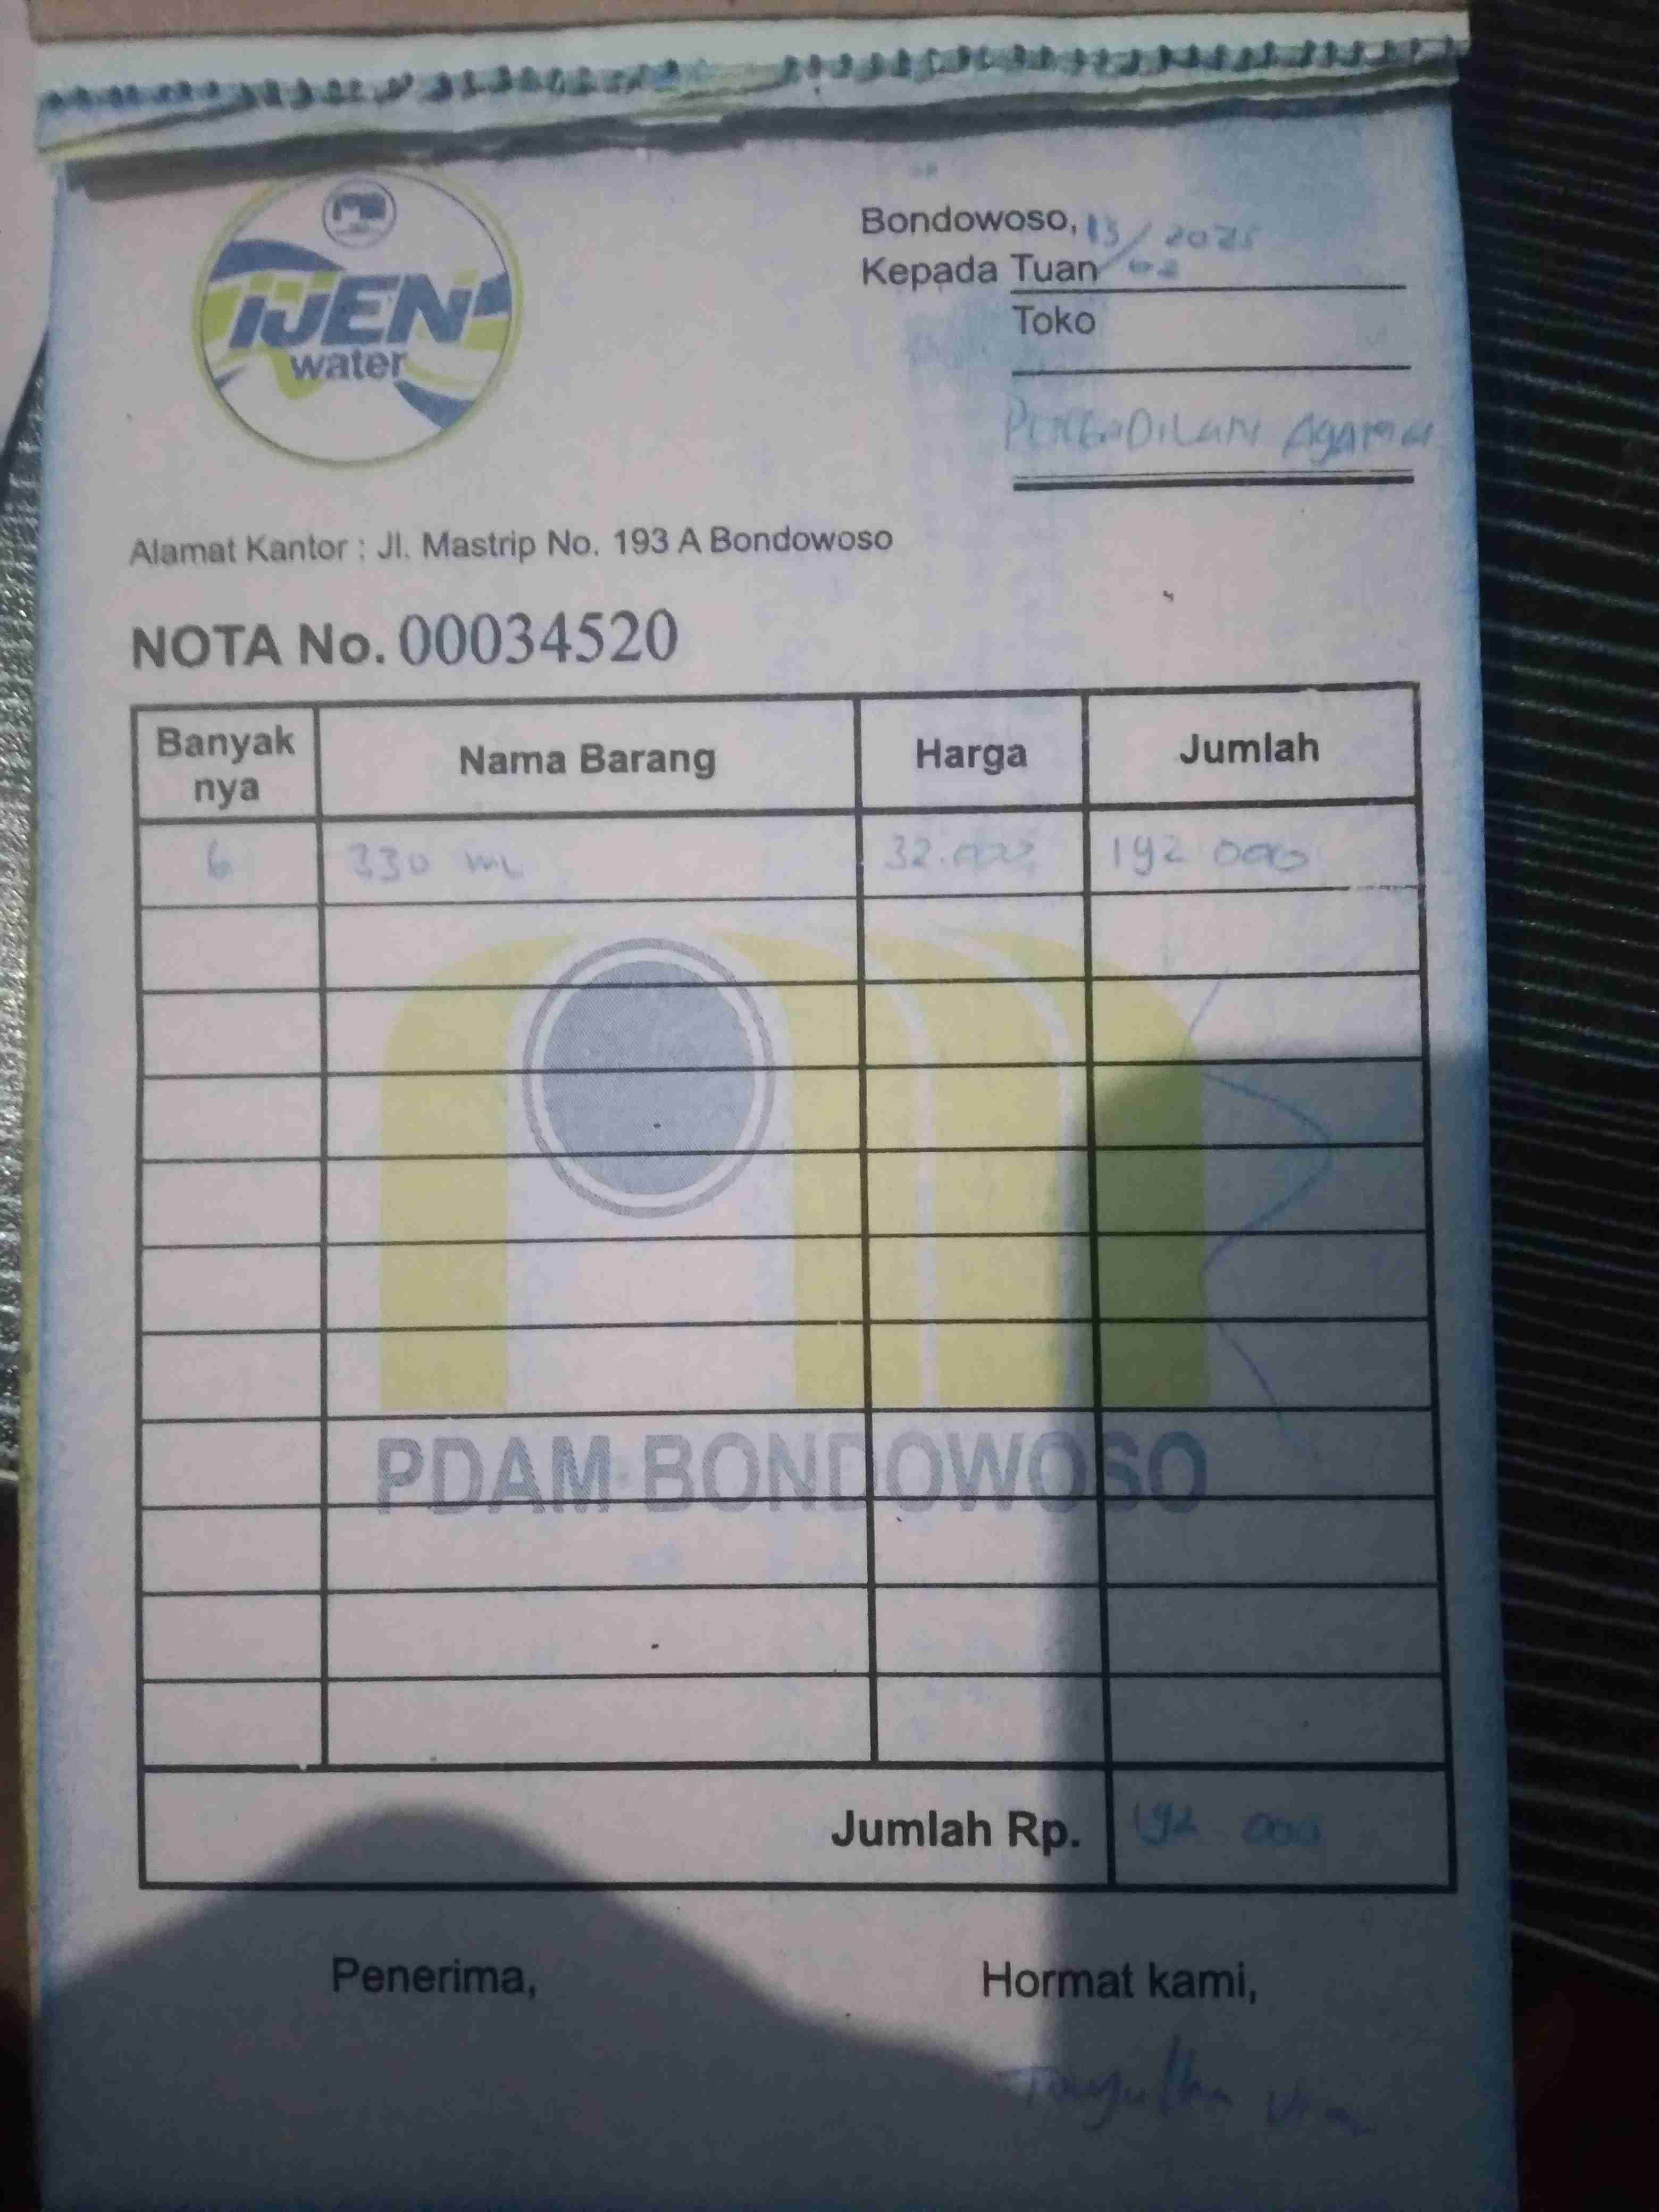 IJEN
water
Bondowoso, 13/02 2025
Kepada Tuan
Toko
PENGADILAN AGAMA
Alamat Kantor : Jl. Mastrip No. 193 A Bondowoso
NOTA No. 00034520
Banyak nya Nama Barang Harga Jumlah
6 330 ml 32.000 192 000
PDAM BONDOWOSO
Jumlah Rp. 192 000
Penerima, Hormat kami,